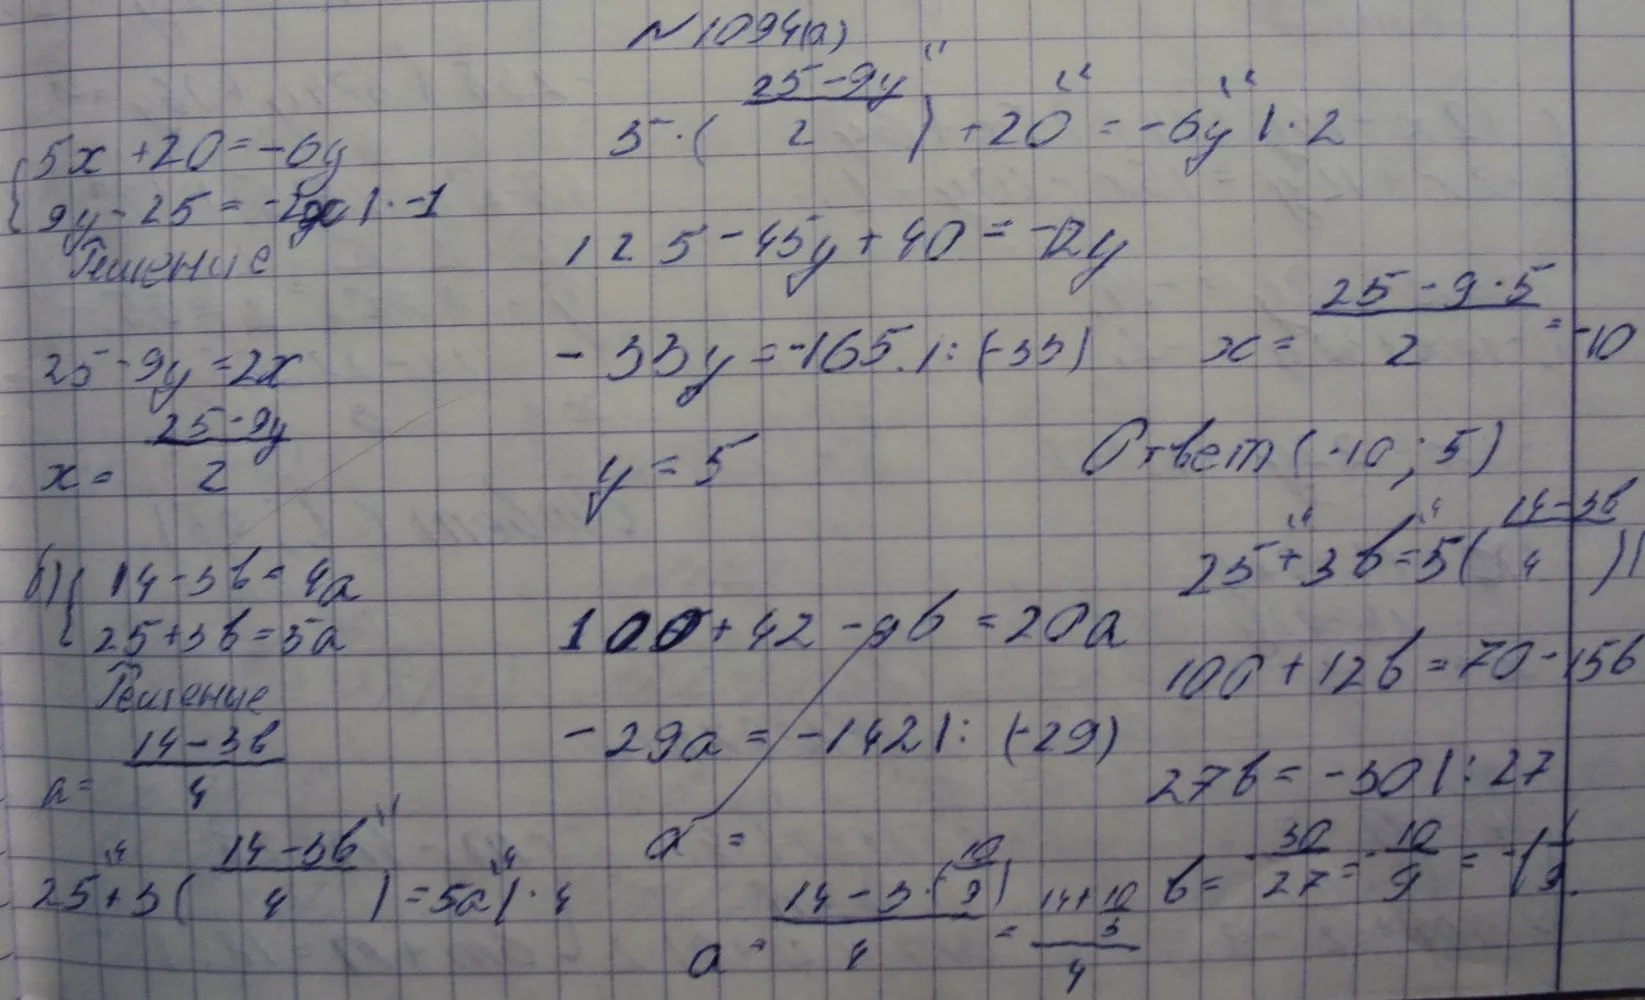 №1094(а)
{5x + 20 = -6y
9y - 25 = -2x |·-1
Решение
25 - 9y = 2x
x = \frac{25-9y}{2}
5·(\frac{25-9y}{2}) + 20 = -6y |·2
125 - 45y + 40 = -12y
-33y = -165 |:(-33)
y = 5
x = \frac{25-9·5}{2} = -10
Ответ (-10; 5)
б) {14 - 3b = 4a
25 + 3b = 5a
Решение
a = \frac{14-3b}{4}
25 + 3(\frac{14-3b}{4}) = 5a |·4
100 + 42 - 9b = 20a
-29a = -142 |:(-29)
a =
25 + 3b = 5(\frac{14-3b}{4}) |
100 + 12b = 70 - 15b
27b = -30 |:27
b = -\frac{30}{27} = -\frac{10}{9} = -1\frac{1}{9}
a = \frac{14-3·(\frac{10}{9})}{4} = \frac{14+\frac{10}{3}}{4}